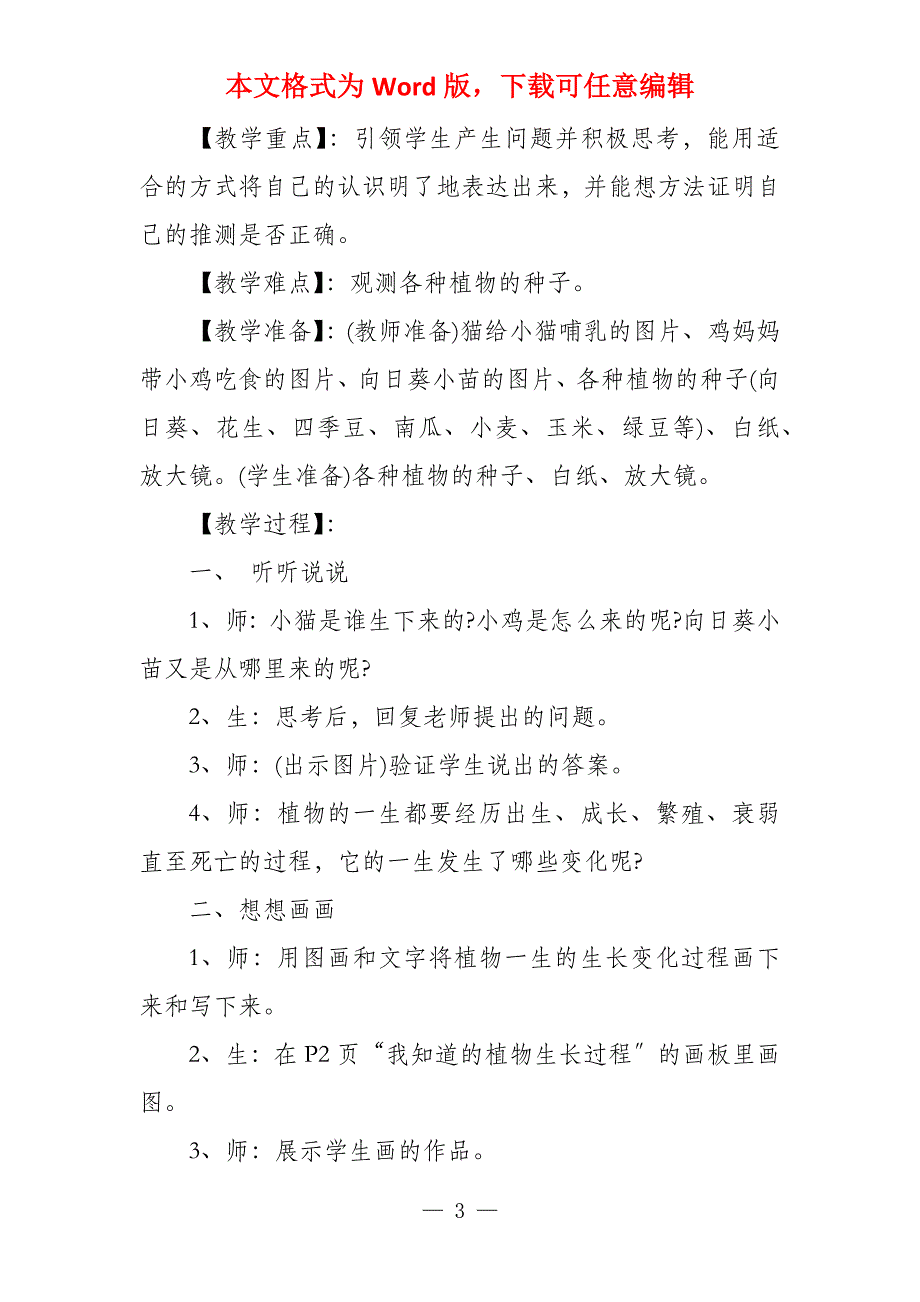 本文格式为 Word 版，下载可任意编辑
【教学重点】：引领学生产生问题并积极思考，能用适
合的方式将自己的认识明了地表达出来，并能想方法证明自
己的推测是否正确。
【教学难点】：观测各种植物的种子。
【教学准备】：(教师准备)猫给小猫哺乳的图片、鸡妈妈
带小鸡吃食的图片、向日葵小苗的图片、各种植物的种子(向
日葵、花生、四季豆、南瓜、小麦、玉米、绿豆等)、白纸、
放大镜。(学生准备)各种植物的种子、白纸、放大镜。
【教学过程】：
一、 听听说说
1、师：小猫是谁生下来的?小鸡是怎么来的呢?向日葵小
苗又是从哪里来的呢?
2、生：思考后，回复老师提出的问题。
3、师：(出示图片)验证学生说出的答案。
4、师：植物的一生都要经历出生、成长、繁殖、衰弱
直至死亡的过程，它的一生发生了哪些变化呢?
二、想想画画
1、师：用图画和文字将植物一生的生长变化过程画下
来和写下来。
2、生：在 P2 页“我知道的植物生长过程〞的画板里画
图。
3、师：展示学生画的作品。
— 3 —